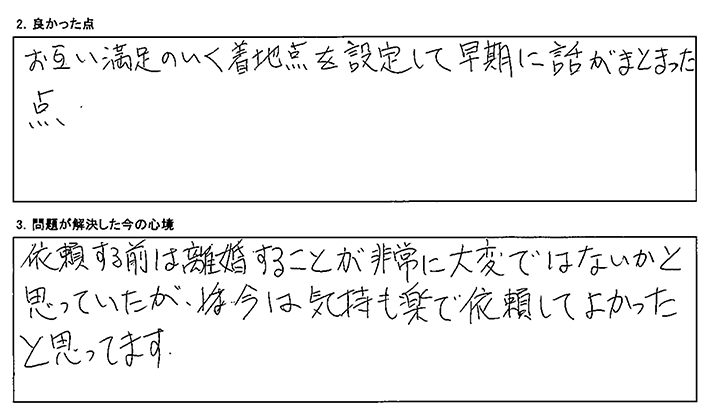 2. 良かった点
お互い満足のいく着地点を設定して早期に話がまとまった
点.
3. 問題が解決した今の心境
依頼する前は離婚することが非常に大変ではないかと
思っていたが、今は気持も楽で依頼してよかった
と思ってます.